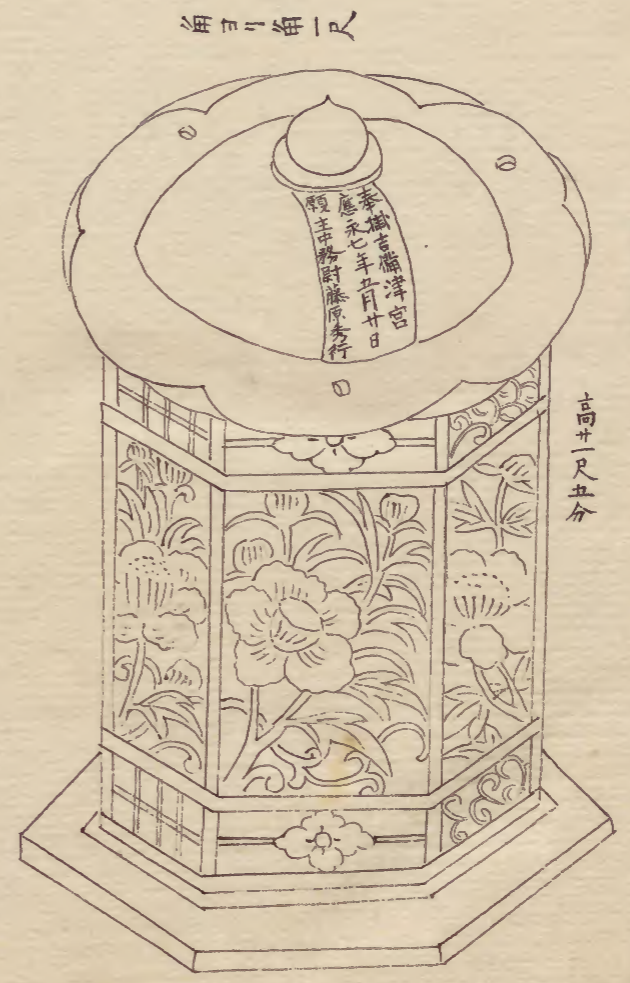 角ヨリ角一尺
奉掛吉備津宮
應永七年五月廿日
願主中務尉藤原秀行
高廿一尺五分